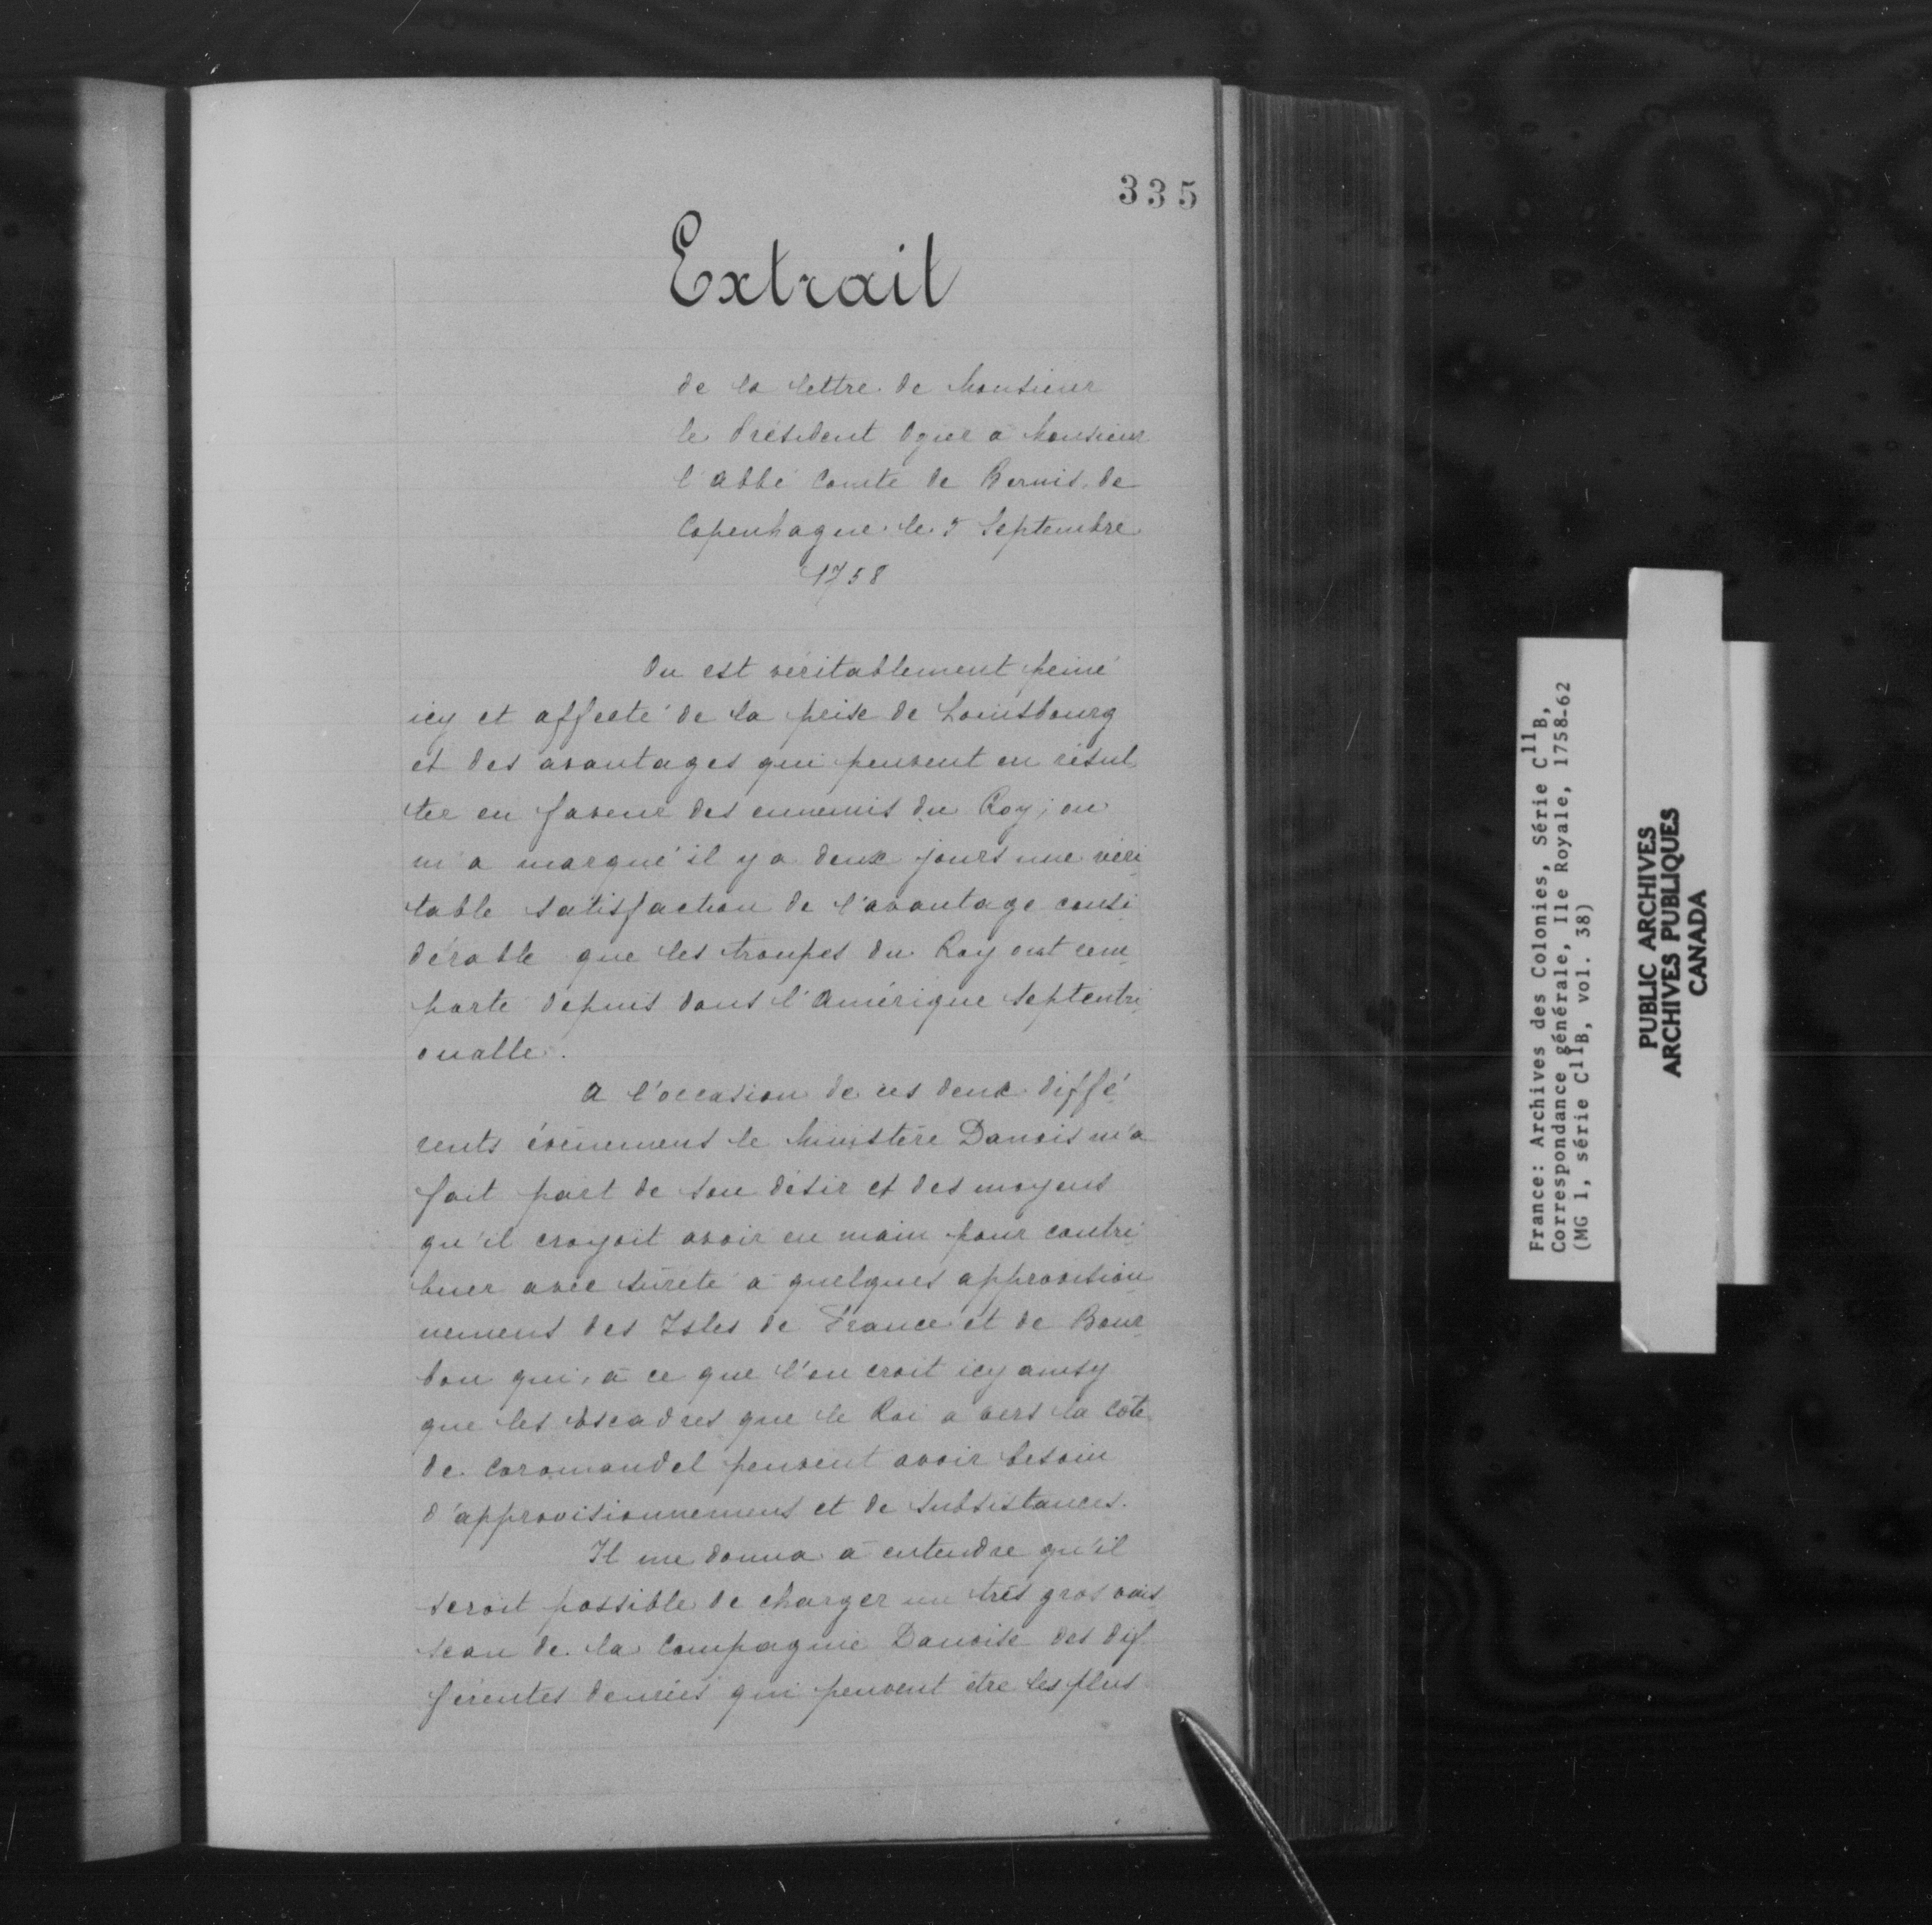 335
Extrait
de la lettre de Monsieur
le Président Ogier à Monsieur
l'abbé Comte de Bernis, de
Copenhague le 5 Septembre
1758
On est véritablement peiné
icy et affecté de la prise de Louisbourg
et des avantages qui peuvent en résul
ter en faveur des ennemis du Roy; on
m'a marqué il y a deux jours une véri
table satisfaction de l'avantage consi
dérable que les troupes du Roy ont rem
porté depuis dans l'Amérique Septentri
onalle.
A l'occasion de ces deux diffé
rents évènemens le Ministère Danois m'a
fait part de son désir et des moyens
qu'il croyoit avoir en main pour contri
buer avec sûreté à quelques approvision
nemens des Isles de France et de Bour
bon qui, à ce que l'on croit icy ainsy
que les Escadres que le Roi a vers la Côte
de Coromandel peuvent avoir besoin
d'approvisionnemens et de subsistances.
Il me donna à entendre qu'il
seroit possible de charger un très gros vais
seau de la Compagnie Danoise des dif
férentes denrées qui peuvent être les plus
France: Archives des Colonies, Série C11B,
Correspondance générale, Ile Royale, 1758-62
(MG 1, série C11B, vol. 38)
PUBLIC ARCHIVES
ARCHIVES PUBLIQUES
CANADA